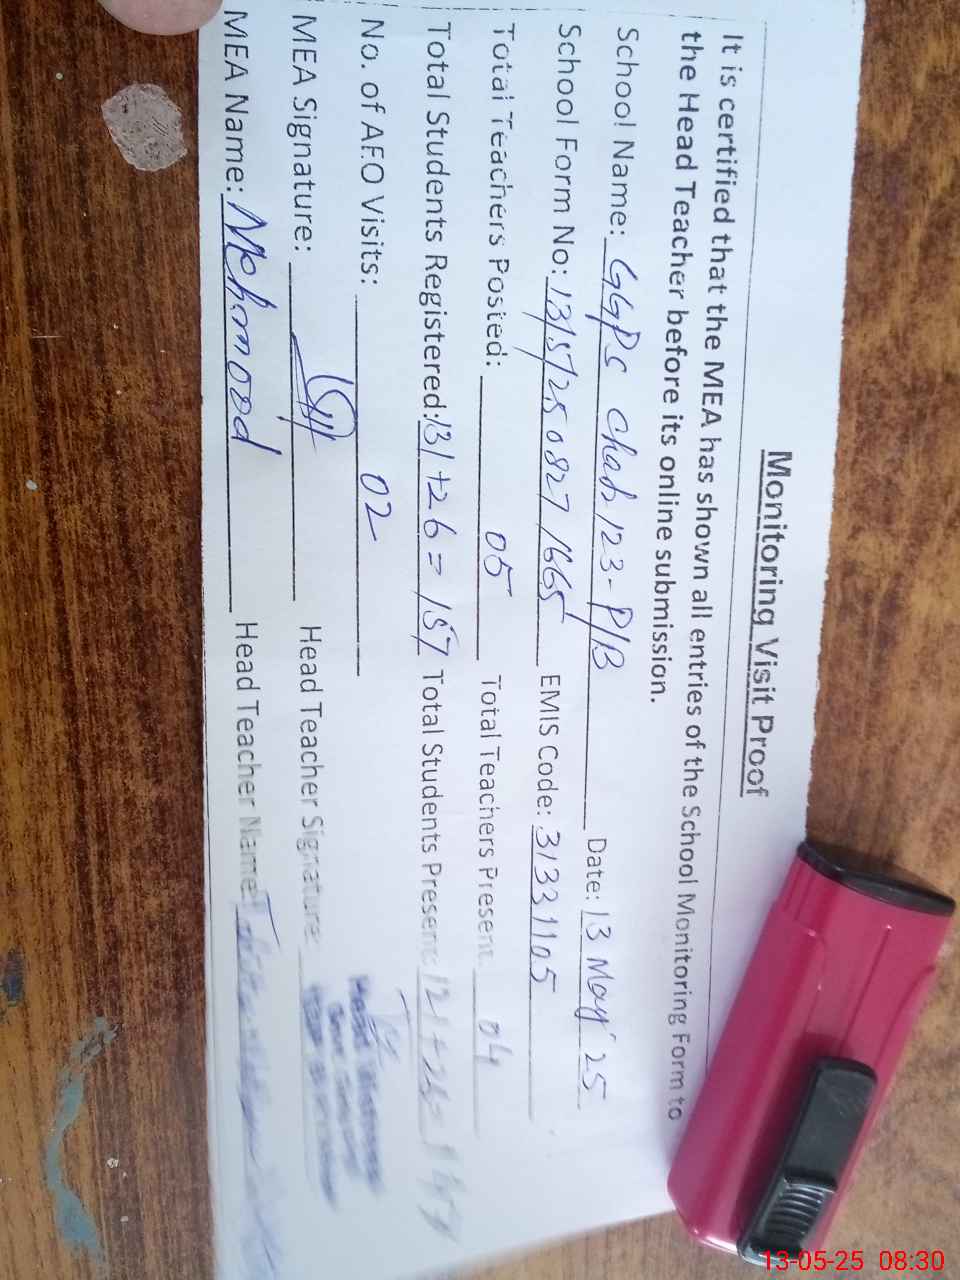 Monitoring Visit Proof
It is certified that the MEA has shown all entries of the School Monitoring Form to
the Head Teacher before its online submission.
School Name: GGPS Chak 123-P/B Date: 13 May 25
School Form No: 13/5/25 0827 1665 EMIS Code: 31331105
Total Teachers Posted: 05 Total Teachers Present 04
Total Students Registered: 131+26=157 Total Students Present: 121+26=
No. of AEO Visits: 02
MEA Signature: Head Teacher Signature:
MEA Name: Mehmood Head Teacher Name:
13-05-25 08:30